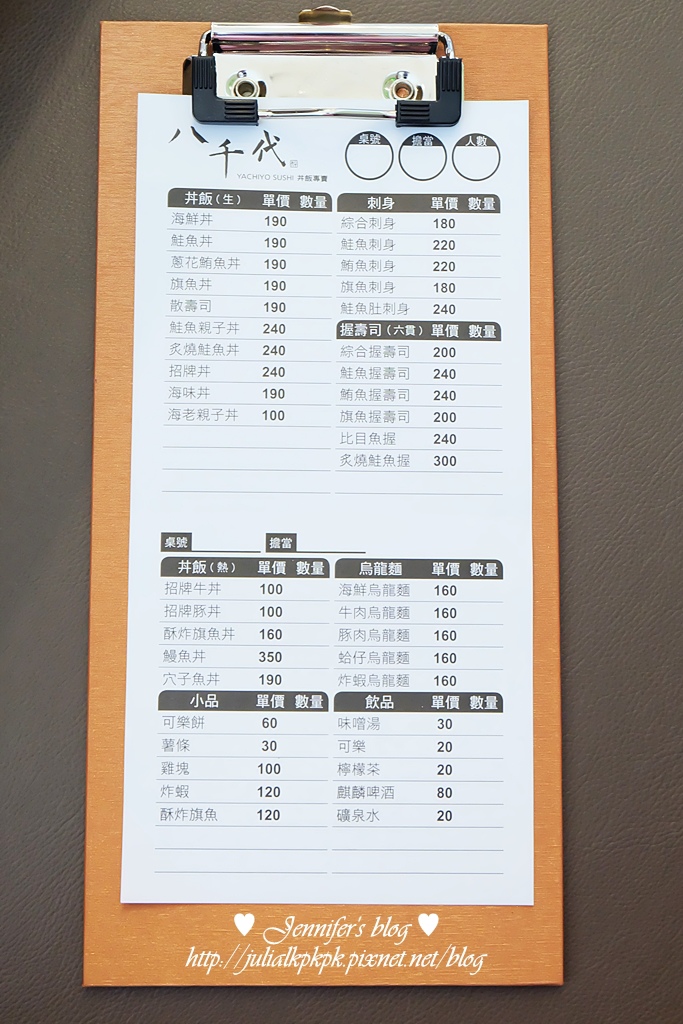 八千代
YACHIYO SUSHI 丼飯專賣
桌號 擔當 人數
丼飯(生) 單價 數量
海鮮丼 190
鮭魚丼 190
蔥花鮪魚丼 190
旗魚丼 190
散壽司 190
鮭魚親子丼 240
炙燒鮭魚丼 240
招牌丼 240
海味丼 190
海老親子丼 100
刺身 單價 數量
綜合刺身 180
鮭魚刺身 220
鮪魚刺身 220
旗魚刺身 180
鮭魚肚刺身 240
握壽司(六貫) 單價 數量
綜合握壽司 200
鮭魚握壽司 240
鮪魚握壽司 240
旗魚握壽司 200
比目魚握 240
炙燒鮭魚握 300
桌號 擔當
丼飯(熱) 單價 數量
招牌牛丼 100
招牌豚丼 100
酥炸旗魚丼 160
鰻魚丼 350
穴子魚丼 190
烏龍麵 單價 數量
海鮮烏龍麵 160
牛肉烏龍麵 160
豚肉烏龍麵 160
蛤仔烏龍麵 160
炸蝦烏龍麵 160
小品 單價 數量
可樂餅 60
薯條 30
雞塊 100
炸蝦 120
酥炸旗魚 120
飲品 單價 數量
味噌湯 30
可樂 20
檸檬茶 20
麒麟啤酒 80
礦泉水 20
♥ Jennifer's blog ♥
http://julialkpkpk.pixnet.net/blog